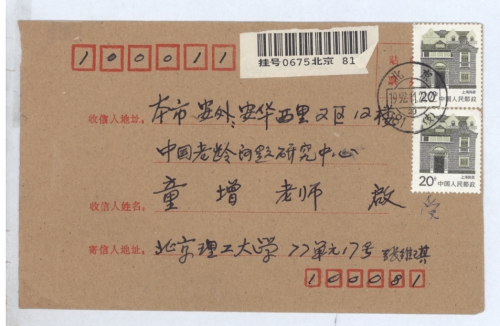 100011
挂号0675北京 81
上海民居
20分
中国人民邮政
北京
1992.11.
上海民居
20分
中国人民邮政
收信人地址: 本市安外安华西里又区12楼
中国老龄问题研究中心
收信人姓名: 童增老师 啟
寄信人地址: 北京理工大学77单元17号
100081